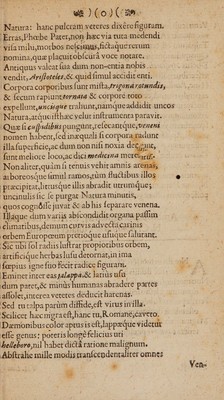 )(o)(
Natura: hanc pulcram veteres dixêre figuram.
Erras, Phœbe Pater, non hæc via tuta medendi
visa mihi, morbos nescimus, fictaque rerum
nomina, quæ placuit obscurâ voce notare.
Antiquus valeat sua dum non-entia nobis
vendit, Aristoteles, & quid simul accidit enti.
Corpora corporibus sunt mista, trigona rotundis,
& secum rapiunt ternum & corpore toto
expellunt, uncique trahunt, namque addidit uncos
Natura, atque isthæc velut instrumenta paravit.
Quæ si cuspidibus pungunt, resecantque, veneni
nomen habent, sed inæquali si corpora radunt
illa superficie, ac dum non nisi noxia de
sint meliore loco, ac dici medicina
Non aliter, quàm si tenui vehit amnis arenas,
arboreosque simul ramos, tum fluctibus illos
præcipitat, hirtusque illis abradit utrumque;
uncinulis hic se purgat Natura minutis,
quos cognosse juvat & ab his separare venena.
Illaque dum variis abscondidit organa passim
climatibus, demum curvis advecta carinis
orbem Europæum pretioque usuque sitarunt.
Sic ubi sol radiis lustrat propioribus orbem,
artificisque herbas lusu detornat, in ima
sæpius igne suo fecit radice figuram.
Eminet inter eas jalappa, & latius usu
dum patet, & minùs humanas abradere partes
assolet, interea veteres deducit habenas.
Sed tu talpa parùm diffide, est virtus in illa.
Scilicet hæc migra est, hanc tu, Romane, caveto.
Dæmonibus color aptus is est, lappæque videtur
esse genus: poteris longè felicius uti
helleboro, nil habet dictâ ratione malignum.
Abstrahe mille modis transcendentaliter omnes
Ven-